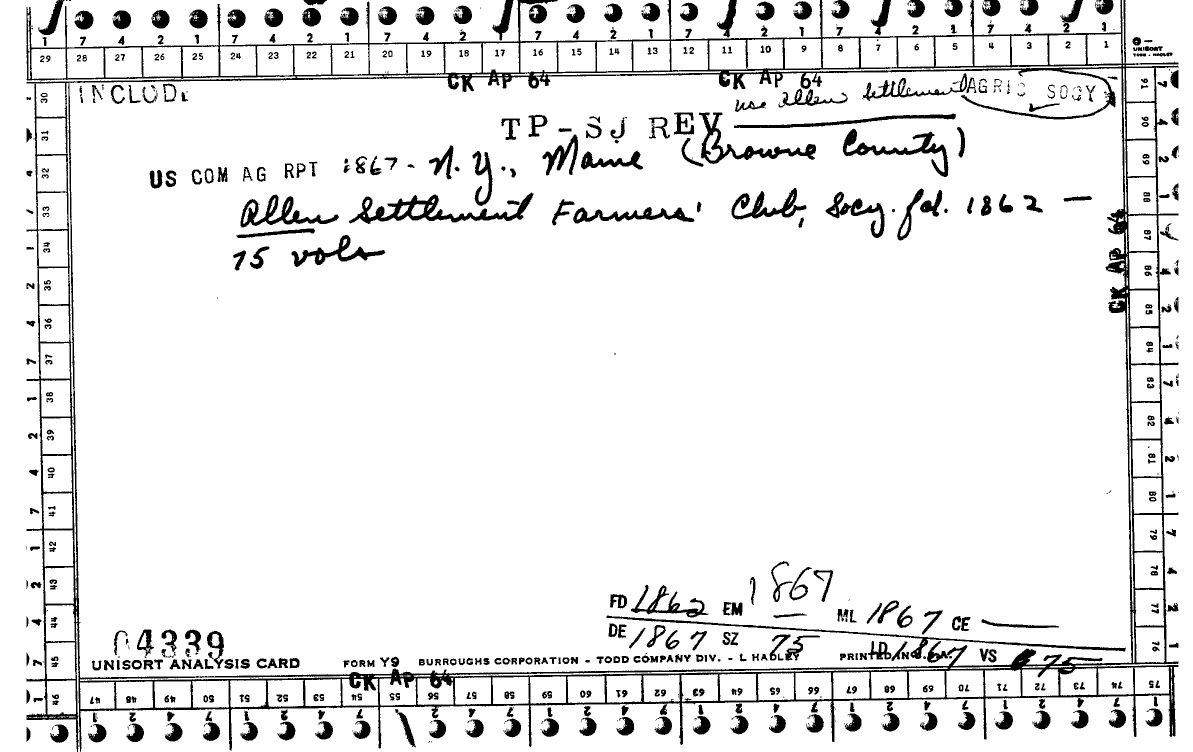 1 7 4 2 1 7 4 2 1 7 4 2 1 7 4 2 1 7 4 2 1 7 4 2 1 7 4 2 1
29 28 27 26 25 24 23 22 21 20 19 18 17 16 15 14 13 12 11 10 9 8 7 6 5 4 3 2 1
UNISORT
TODD - HADLEY
CK AP 64 CK AP 64
INCLUDE
use Allen Settlement AGRIC SOCY
TP-SJ REV
US COM AG RPT 1867 - N.Y., Maine (Browne County)
Allen Settlement Farmers' Club, Socy. fd. 1862 —
75 vols
CK AP 64
30 31 32 33 34 35 36 37 38 39 40 41 42 43 44 45 46
91 90 89 88 87 86 85 84 83 82 81 80 79 78 77 76
FD 1862 EM 1867 ML 1867 CE —
DE 1867 SZ 75 ID 1867 VS 75
04339
UNISORT ANALYSIS CARD FORM Y9 BURROUGHS CORPORATION - TODD COMPANY DIV. - L HADLEY PRINTED IN U.S.A.
CK AP 64
47 48 49 50 51 52 53 54 55 56 57 58 59 60 61 62 63 64 65 66 67 68 69 70 71 72 73 74 75